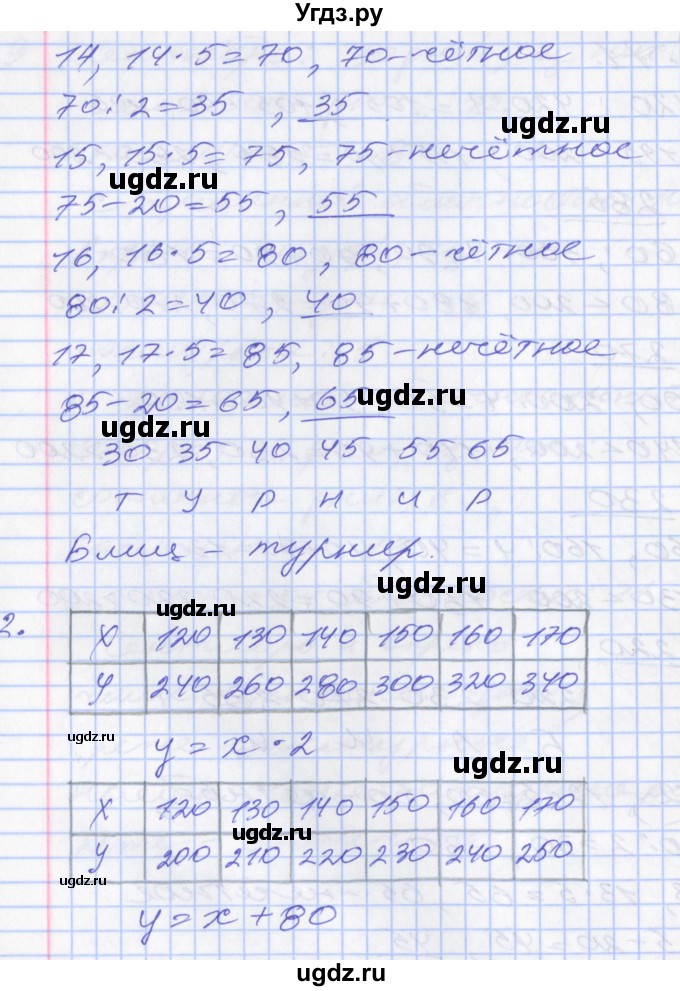 Угдз.ру
14, 14·5=70, 70-чётное
70:2=35, 35
ugdz.ru
15, 15·5=75, 75-нечётное
ugdz.ru
75-20=55, 55
16, 16·5=80, 80-чётное
80:2=40, 40
17, 17·5=85, 85-нечётное
85-20=65, 65
ugdz.ru
ugdz.ru
30 35 40 45 55 65
Т У Р Н И Р
Блиц-турнир.
ugdz.ru
ugdz.ru
2.
x 120 130 140 150 160 170
y 240 260 280 300 320 340
ugdz.ru
y=x·2
ugdz.ru
x 120 130 140 150 160 170
ugdz.ru
y 200 210 220 230 240 250
ugdz.ru
y=x+80
ugdz.ru